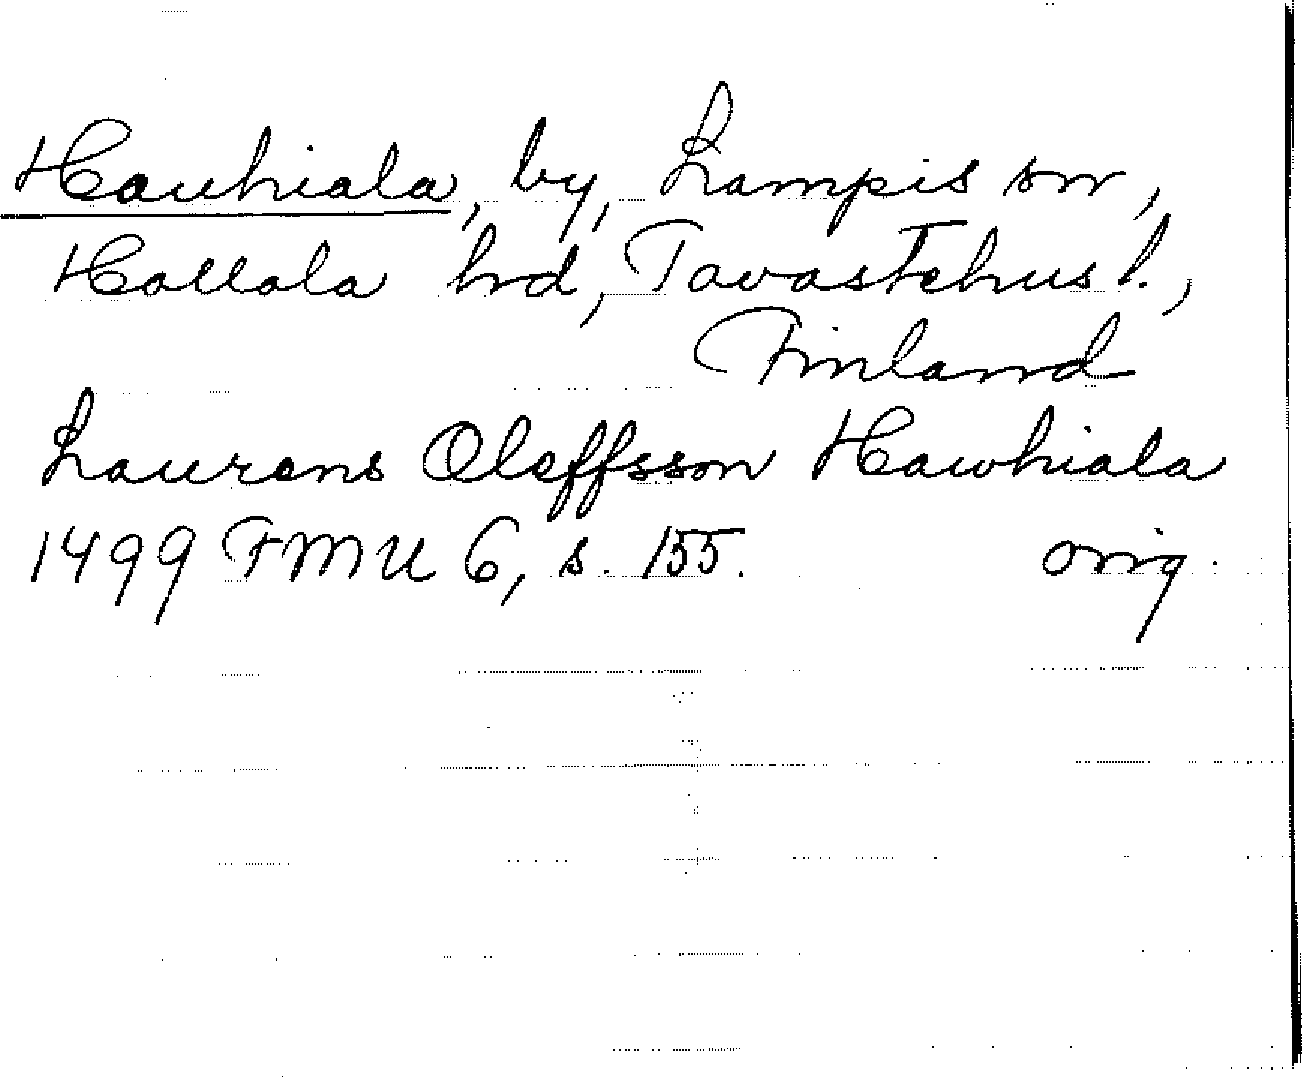 Hauhiala, by, Lampis sn,
Hollola hd, Tavastehus l.,
Finland
Laurens Oleffsson Hawhiala
1499 FMU 6, s. 155. orig.